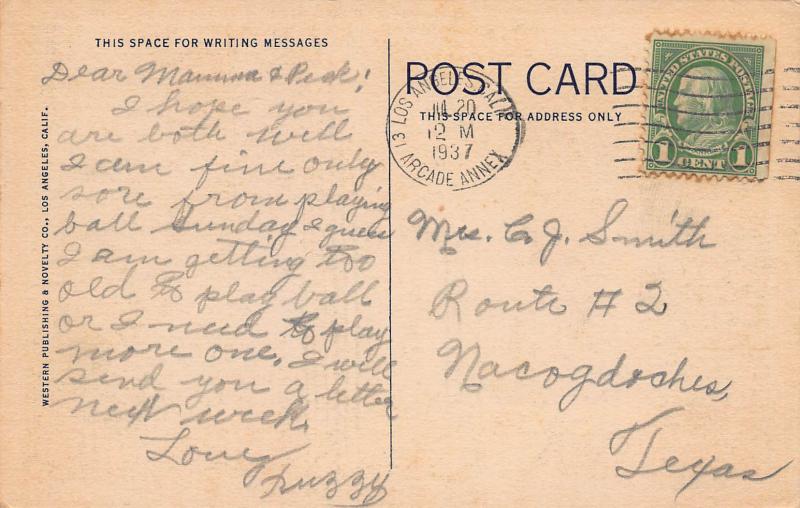 THIS SPACE FOR WRITING MESSAGES
Dear Mamma & Peck!
I hope you
are both well
I am fine only
sore from playing
ball Sunday I guess
I am getting too
old to play ball
or I need to play
more one. I will
send you a letter
next week.
Love
WESTERN PUBLISHING & NOVELTY CO., LOS ANGELES, CALIF.
POST CARD
THIS SPACE FOR ADDRESS ONLY
LOS ANGELES, CALIF.
JUL 20
12 M
1937
13 ARCADE ANNEX
UNITED STATES POSTAGE
FRANKLIN
1 CENT 1
Mrs. C. J. Smith
Route # 2
Nacogdoches,
Texas